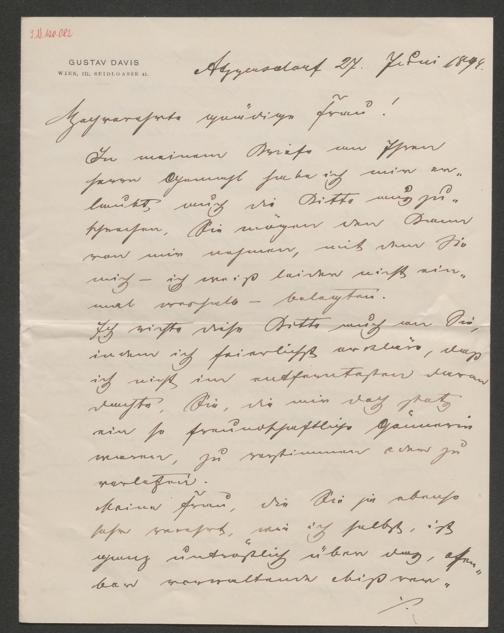 I.N. 120.082
GUSTAV DAVIS
WIEN, III. SEIDLGASSE
Atzgersdorf 27. Juni 1898.
Hochverehrte gnädige Frau!
In meinem Briefe an Ihren
Herrn Gemahl habe ich mir er-
laubt, auch die Bitte auszu-
sprechen, Sie mögen den Bann
von mir nehmen, mit dem Sie
mich – ich weiß leider nicht ein-
mal weshalb – belegten.
Ich richte diese Bitte auch an Sie,
indem ich feierlichst erkläre, daß
ich nicht im entferntesten daran
dachte, Sie, die mir doch stets
eine so freundschaftliche Gönnerin
waren, zu verstimmen oder zu
verletzen.
Meine Frau, die Sie ja ebenso
sehr verehrt, wie ich selbst, ist
ganz untröstlich über das, offen-
bar vorwaltende Mißver-